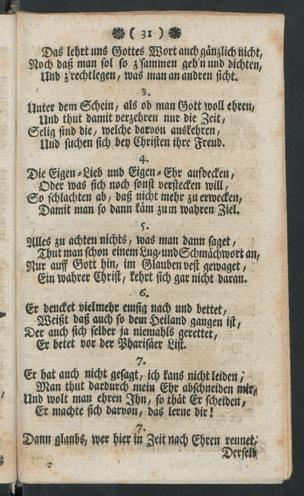 ( 31 )
Das lehrt uns Gottes Wort auch gänzlich nicht,
Noch daß man sol so z'sammen geh'n und dichten,
Und z'rechtlegen, was man an andren sicht.
3.
Unter dem Schein, als ob man Gott woll ehren,
Und thut damit verzehren nur die Zeit,
Selig sind die, welche darvon auskehren,
Und suchen sich bey Christen ihre Freud.
4.
Die Eigen-Lieb und Eigen-Ehr aufdecken,
Oder was sich noch sonst verstecken will,
So schlachten ab, daß nicht mehr zu erwecken,
Damit man so dann käm zum wahren Ziel.
5.
Alles zu achten nichts, was man dann saget,
Thut man schon einem Lug-und Schmachwort an,
Nur auff Gott hin, im Glauben vest gewaget,
Ein wahrer Christ, kehrt sich gar nicht daran.
6.
Er dencket vielmehr emsig nach und bettet,
Weißt daß auch so dem Heiland gangen ist,
Der auch sich selber ja niemahls gerettet,
Er betet vor der Pharisäer List.
7.
Er hat auch nicht gesagt, ich kans nicht leiden,
Man thut dardurch mein Ehr abschneiden mir,
Und wolt man ehren Ihn, so thät Er scheiden,
Er machte sich darvon, das lerne dir!
7.
Dann glaubs, wer hier in Zeit nach Ehren rennet,
Derselb